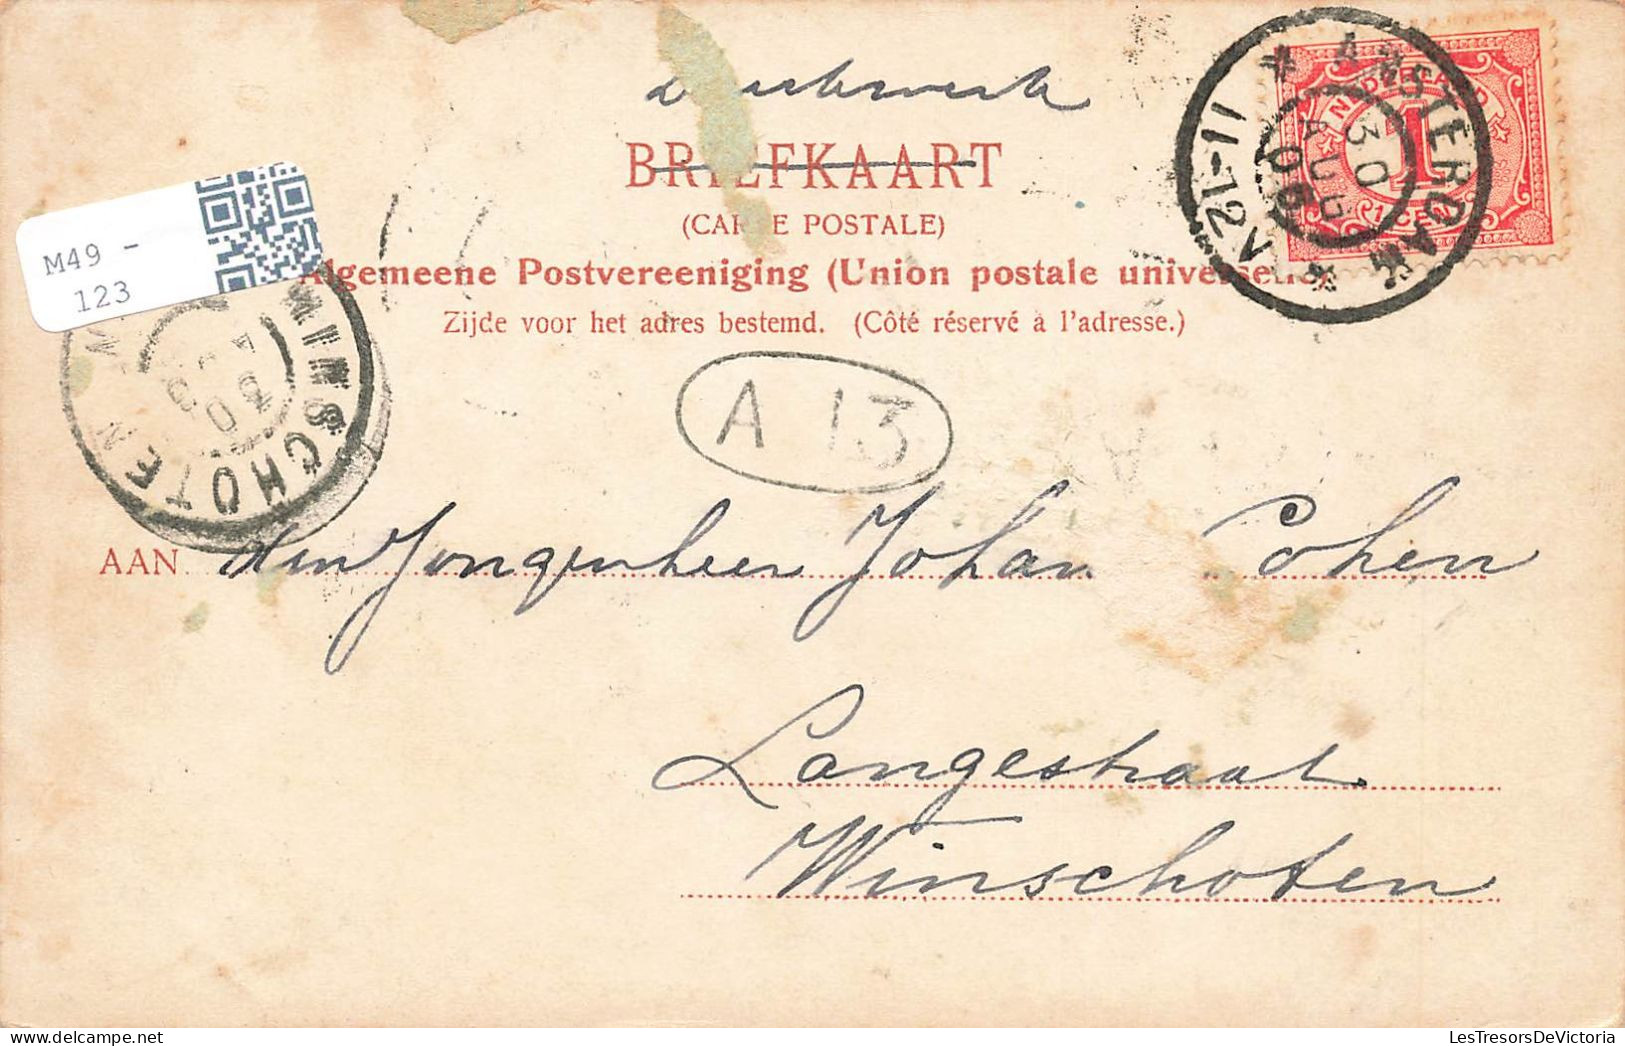 Drukwerk
BRIEFKAART
(CARTE POSTALE)
Algemeene Postvereeniging (Union postale universelle)
Zijde voor het adres bestemd. (Côté réservé à l'adresse.)
AMSTERDAM
30 AUG 05
11-12V
NEDERLAND
1
1 CENT
M49 -
123
WINSCHOTEN
30
A 13
AAN den Jongenheer Johan Cohen
Langestraat
Winschoten
LesTresorsDeVictoria